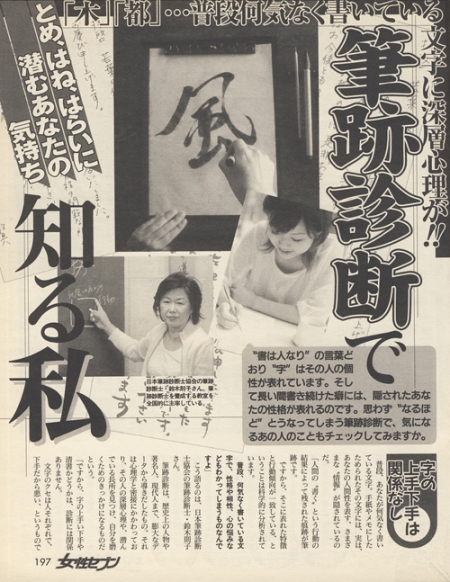 「木」「都」…普段何気なく書いている
文字に深層心理が!!
筆跡診断で
知る私
とめ、はね、はらいに
潜むあなたの
気持ち
風
日本筆跡診断士協会の筆跡
診断士・鈴木則子さん。筆跡
診断士を養成する教室を
全国的に主宰している。
“書は人なり”の言葉ど
おり“字”はその人の個
性が表れています。そし
て長い間書き続けた癖には、隠されたあな
たの性格が表れるのです。思わず“なるほ
ど”とうなってしまう筆跡診断で、気にな
るあの人のこともチェックしてみますか。
字の
上手下手は
関係なし
普段、あなたが何気なく書い
ている文字。手紙やメモにした
ためられたその文字には、実は、
あなたの人間性を表す、さまざ
まな“情報”が隠されているの
です。
「人間の〝書く〟という行動の
結果によって残された痕跡が筆
跡ですから、そこに表れた特徴
と行動傾向が一致しているとい
うことは科学的に分析されて
います。
普段、何気なく書いている文
字で、性格や相性、心の悩みな
どもわかってしまうものなんで
すよ」
こう語るのは、日本筆跡診断
士協会の筆跡診断士・鈴木則子
さん。
筆跡診断は、歴史上の人物や
著名人、現代人まで、膨大なデ
ータから導きだしたもの。それ
は心理学と密接にかかわってお
り、その人の深層心理や、潜ん
でいる長所を見つけ、自分を磨
くためのきっかけになるものだ
という。
「ですから、字の上手い下手や
清書かどうかは、診断には関係
ありません。
文字のクセは人それぞれで、
下手だから悪い、というもので
197 女性セブン